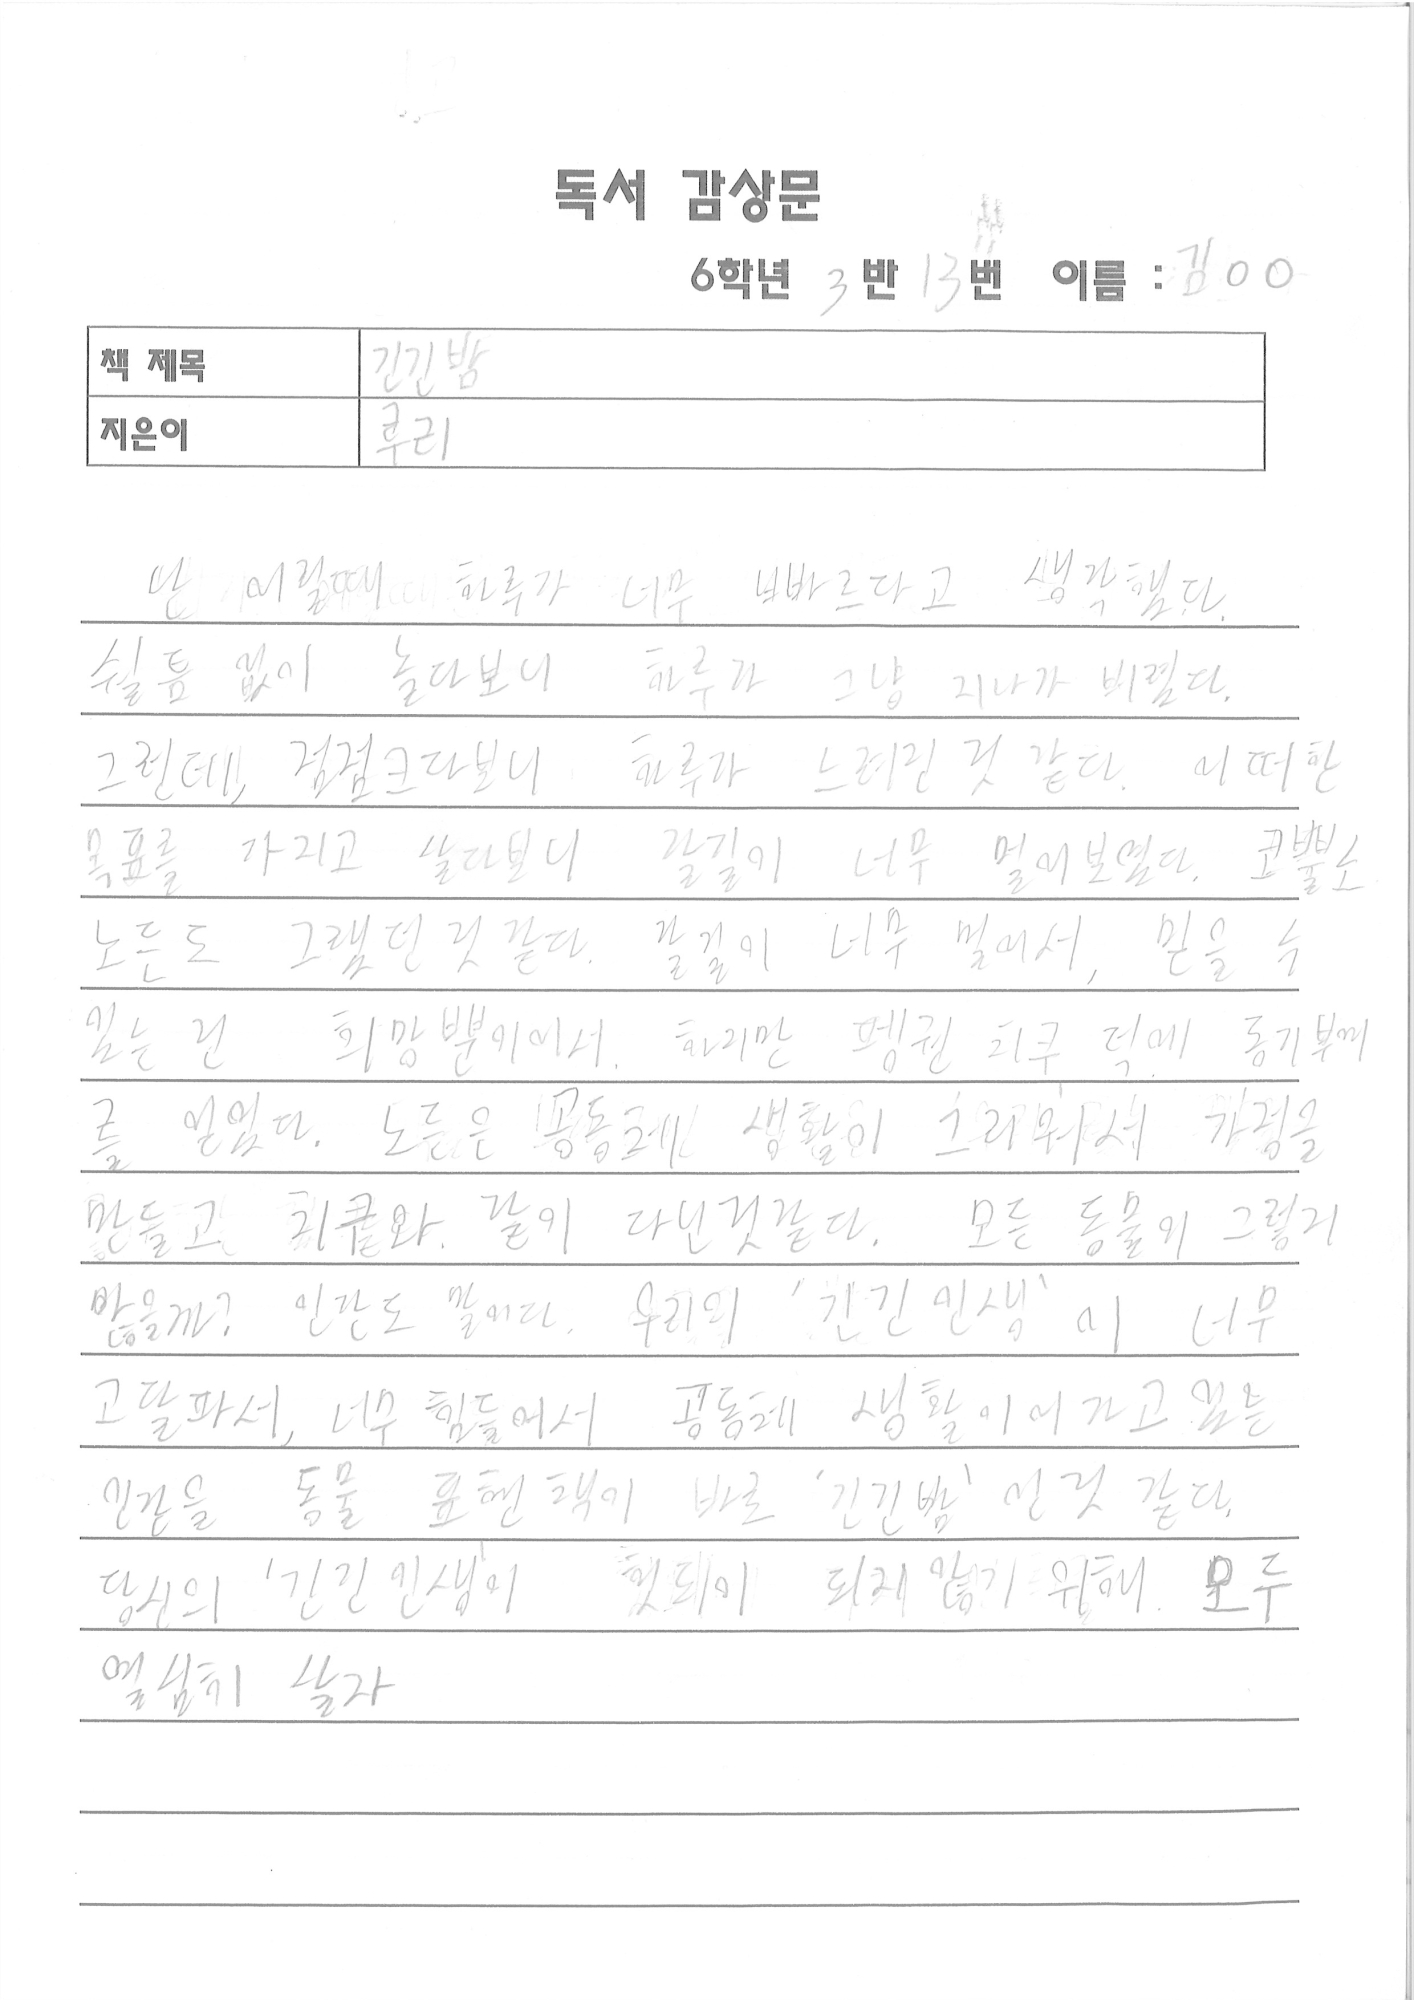 독서 감상문
6학년 3 반 13 번 이름 : 김○○
책 제목 긴긴밤
지은이 루리
난 어릴때 하루가 너무 빠르다고 생각했다.
쉴틈 없이 놀다보니 하루가 그냥 지나가 버렸다.
그런데, 점점크다보니 하루가 느려진 것 같다. 어떠한
목표를 가지고 살다보니 갈길이 너무 멀어보였다. 코뿔소
노든도 그랬던 것 같다. 갈길이 너무 멀어서, 믿을 수
있는 건 희망뿐이어서. 하지만 펭귄 치쿠 덕에 동기부여
를 얻었다. 노든은 공동체 생활이 그리워서 가정을
만들고 치쿠와 같이 다닌것같다. 모든 동물이 그렇지
않을까? 인간도 말이다. 우리의 '긴긴 인생' 이 너무
고달파서, 너무 힘들어서 공동체 생활이어가고 있는
인간을 동물 표현 책이 바로 '긴긴밤' 인 것 같다.
당신의 '긴긴인생'이 헛되이 되지 않기 위해 모두
열심히 살자